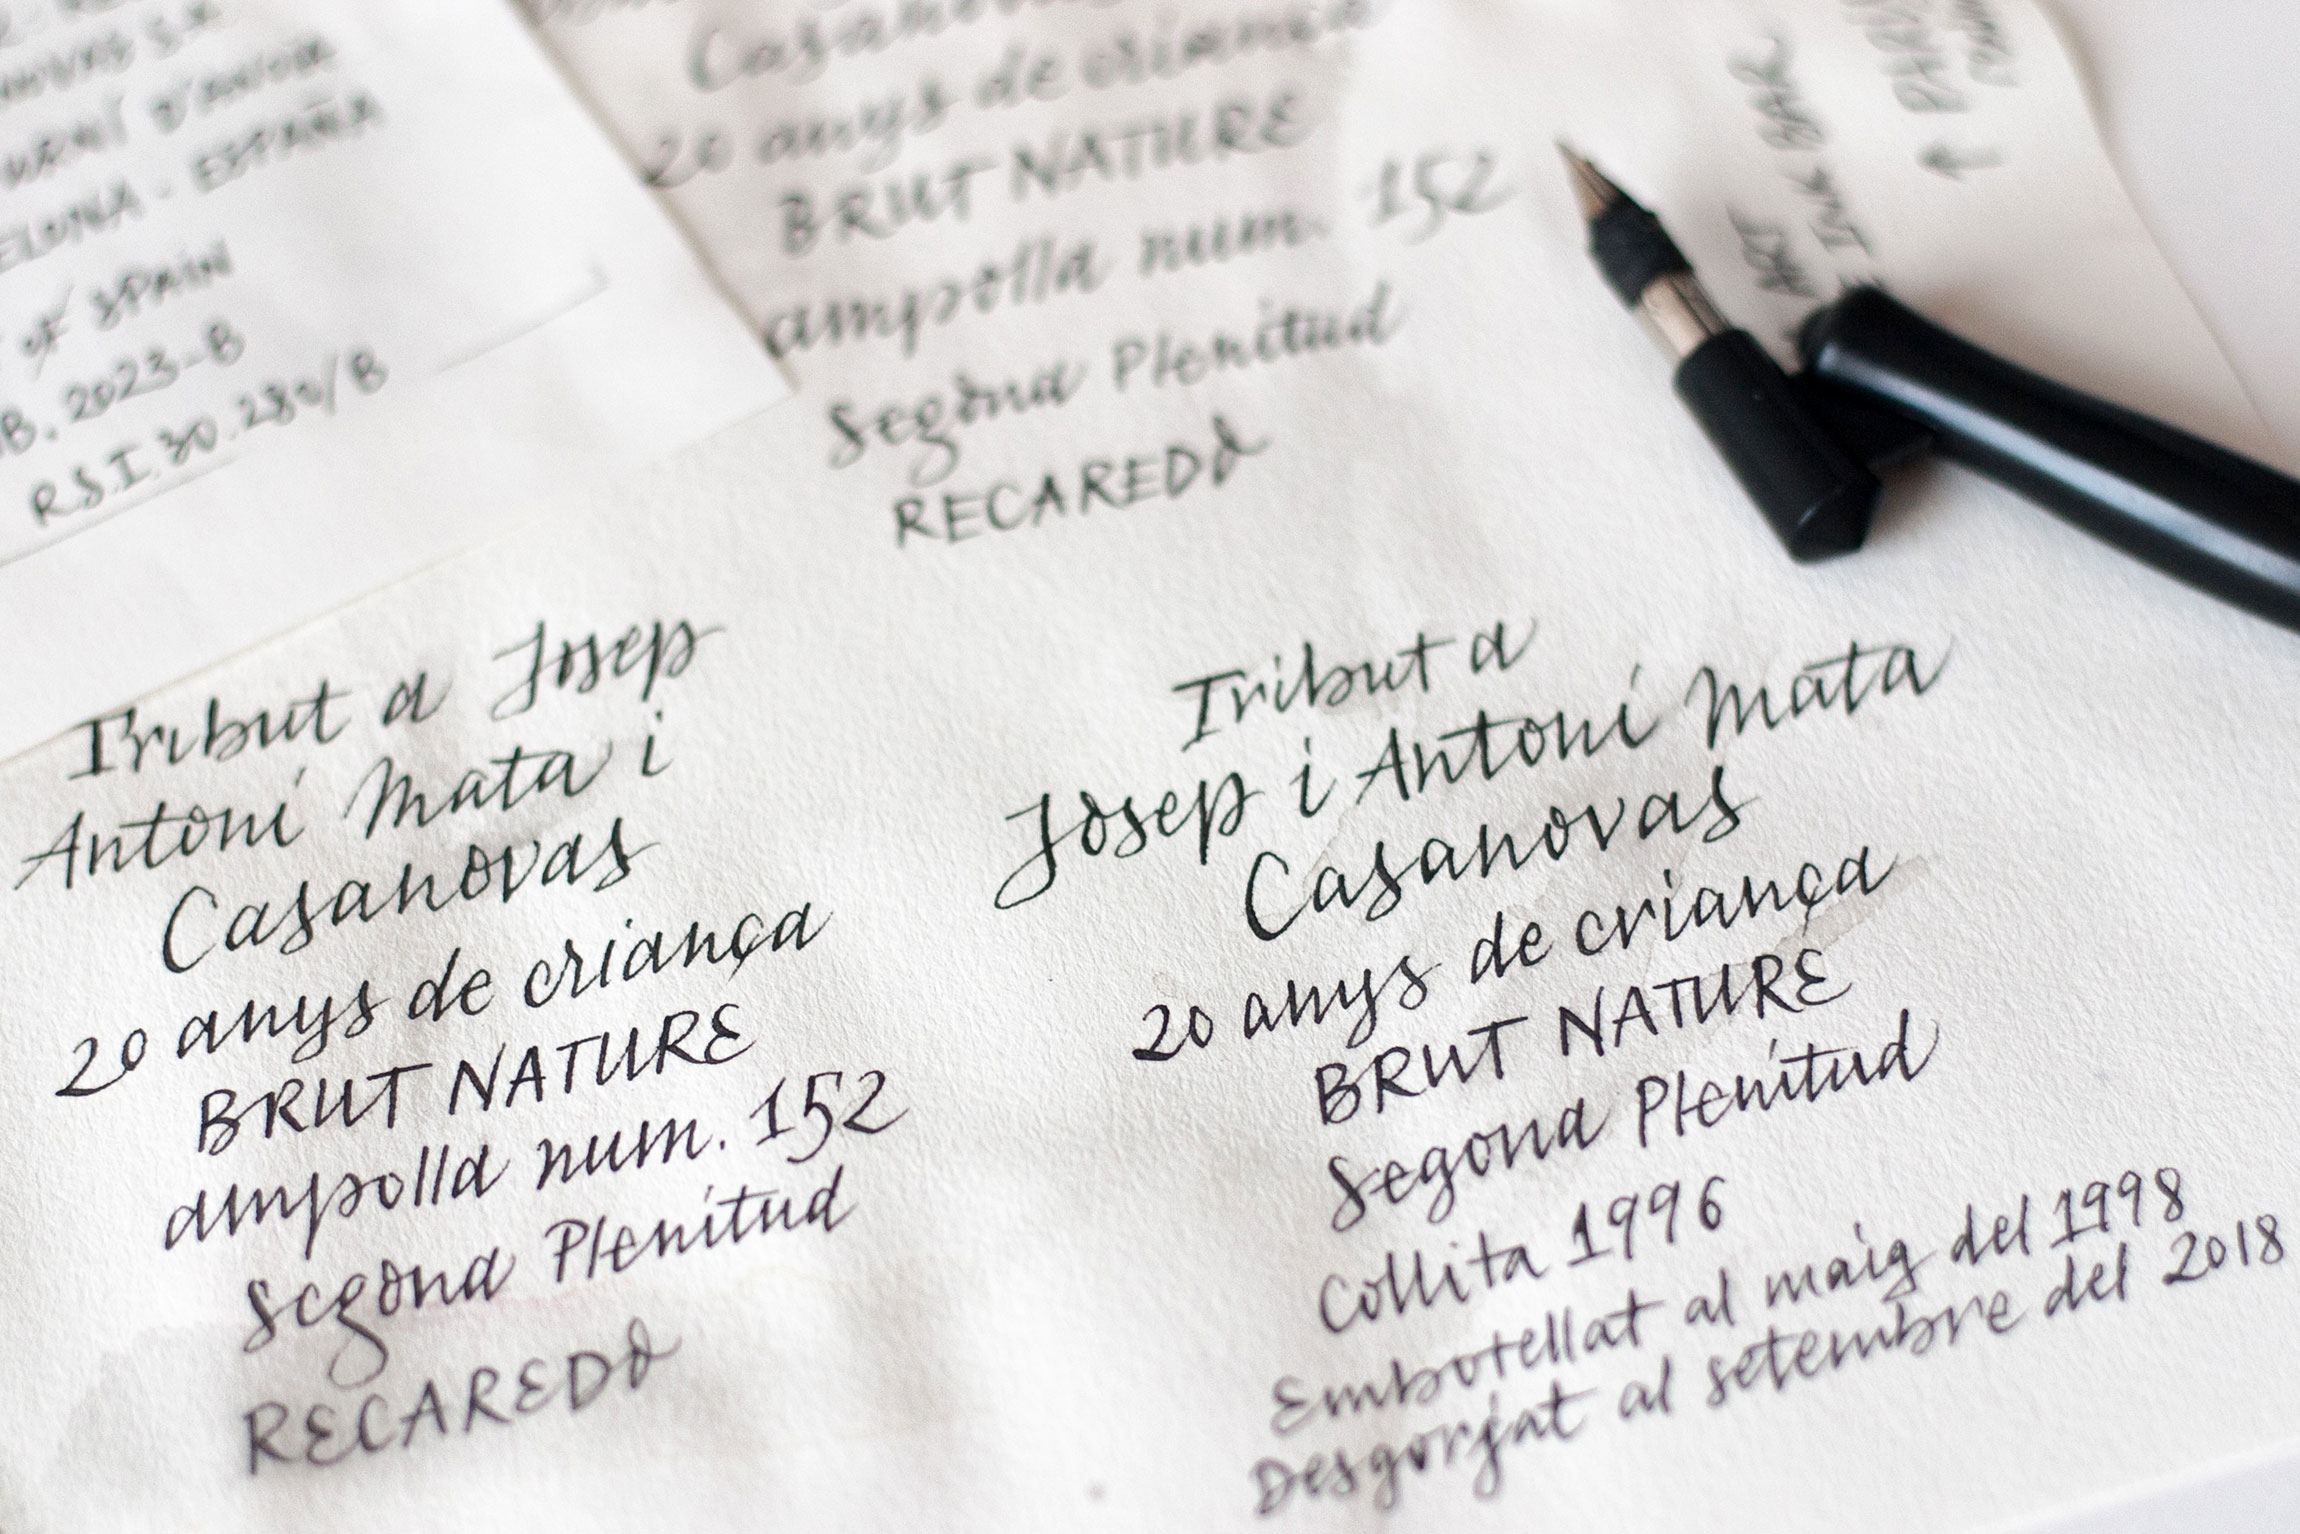 ESPAÑA
OF SPAIN
2023-B
R.S.I. 30.280/B
Casanovas
20 anys de criança
BRUT NATURE
ampolla num. 152
Segona Plenitud
RECAREDO
ART BAR
Tribut a Josep
Antoni Mata i
Casanovas
20 anys de criança
BRUT NATURE
ampolla num. 152
Segona Plenitud
RECAREDO
Tribut a
Josep i Antoni Mata
Casanovas
20 anys de criança
BRUT NATURE
Segona Plenitud
Collita 1996
Embotellat al maig del 1998
Desgorjat al setembre del 2018